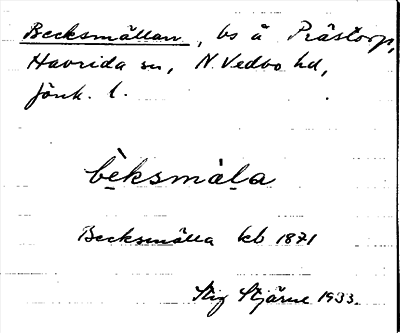 Becksmällan, bs å Prästorp,
Haurida sn, N. Vedbo hd,
Jönk. l.
bèksmäla
Becksmälla kb 1871
Stig Stjärne 1933.